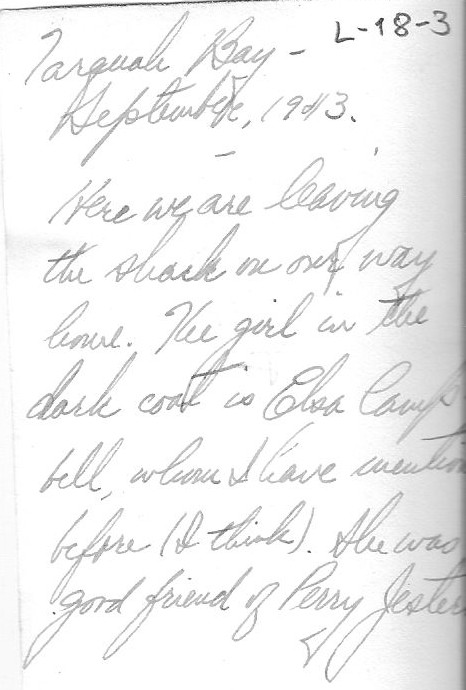 L-18-3
Tarquah Bay -
September, 1943.
Here we are leaving
the shack on our way
home. The girl in the
dark coat is Elsa Camp
bell, whom I have mention
before (I think). She was
good friend of Perry Jester